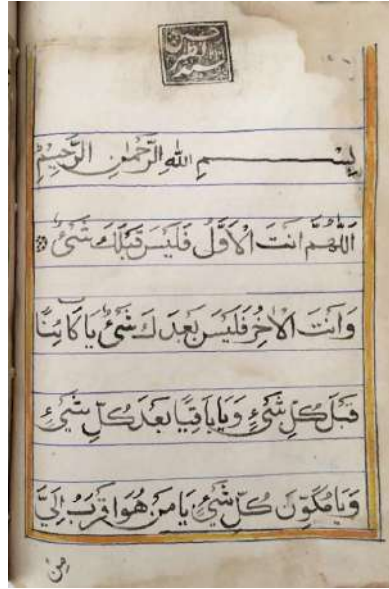 بِسْمِ اللهِ الرَّحْمٰنِ الرَّحِيْمِ
اَللّٰهُمَّ اَنْتَ الْاَوَّلُ فَلَيْسَ قَبْلَكَ شَئٌ
وَاَنْتَ الْاٰخِرُ فَلَيْسَ بَعْدَكَ شَئٌ يَا كَائِنًا
قَبْلَ كُلِّ شَيْءٍ وَيَا بَاقِيًا بَعْدَ كُلِّ شَيْءٍ
وَيَا مُكَوِّنَ كُلِّ شَيْءٍ يَا مَنْ هُوَ اَقْرَبُ اِلَيَّ
مِنْ